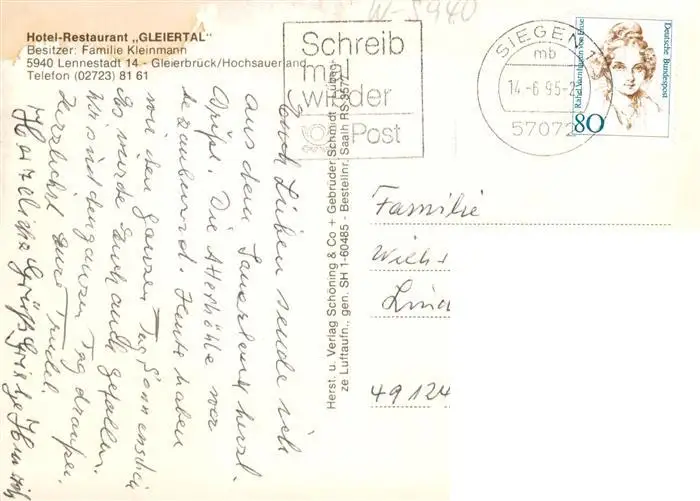 W-5940
Hotel-Restaurant „GLEIERTAL"
Besitzer: Familie Kleinmann
5940 Lennestadt 14 - Gleierbrück/Hochsauerland
Telefon (02723) 81 61
Schreib
mal
wieder
Post
SIEGEN 1
mb
14.-6.95-2
57072
Rahel Varnhagen von Ense
Deutsche Bundespost
80
Euch Lieben sende ich
aus dem Sauerland herzl.
Grüße. Die Attahöhle war
bezaubernd. Heute haben
wir den ganzen Tag Sonnenschein
Es würde Euch auch gefallen.
Wir sind den ganzen Tag draußen.
Herzlichst Eure Trudel.
Herzliche Grüße
Herst. u. Verlag Schöning & Co + Gebrüder Schmidt
ze Luftaufn., gen. SH 1-60485 - Bestellnr. Saalh RS 3577
Familie
Wilh
Lind
49124